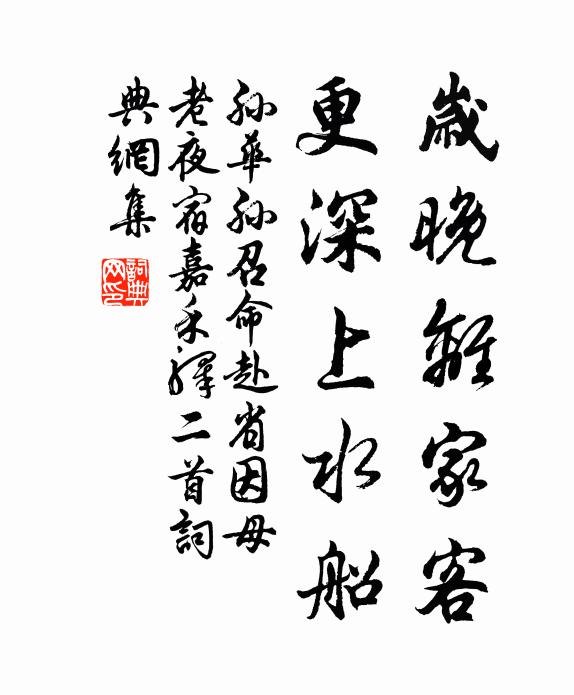 歲晚離家客
更深上水船
孫華孫召命赴省因母
老夜宿嘉禾驛二首詞
典網集
詞典
网印